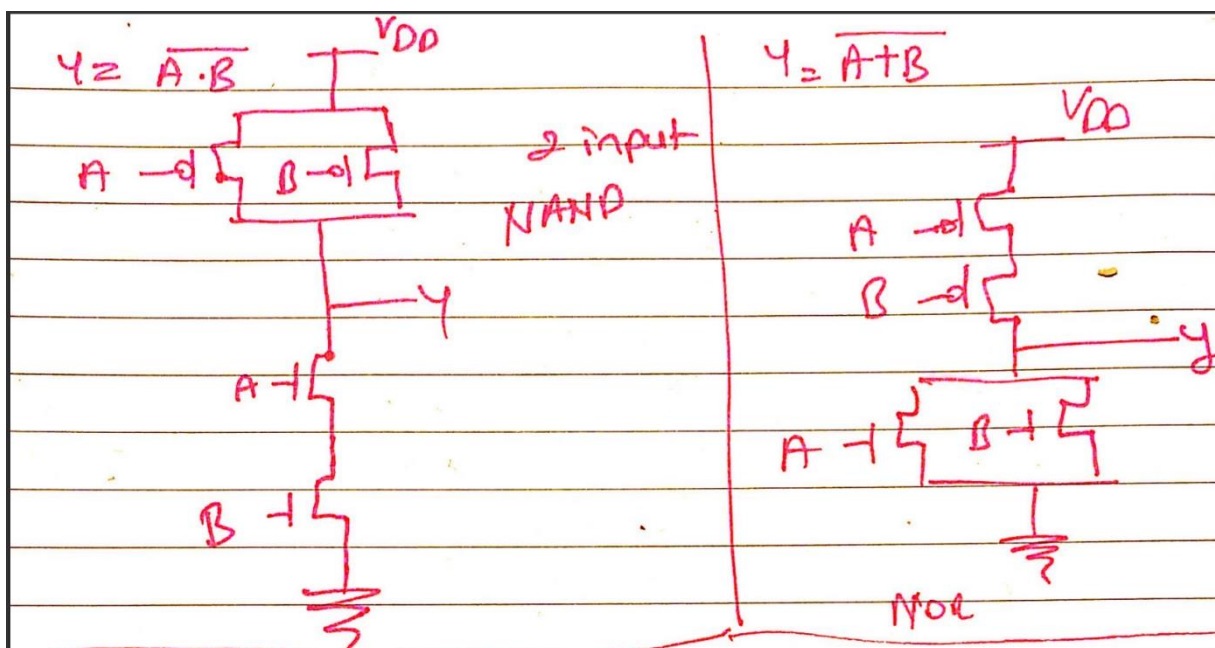 Y = \overline{A \cdot B}
VDD
A
B
2 input
NAND
Y
A
B
Y = \overline{A+B}
VDD
A
B
y
A
B
NOR